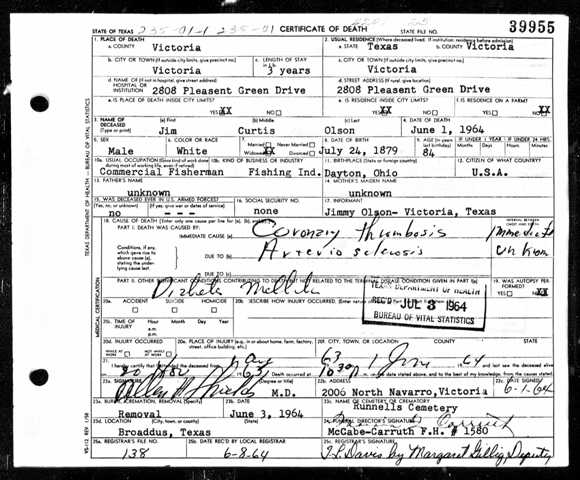 STATE OF TEXAS
235-01-1 235-01
CERTIFICATE OF DEATH
STATE FILE NO.
39955
1. PLACE OF DEATH
a. COUNTY Victoria
2. USUAL RESIDENCE (Where deceased lived. If institution: residence before admission)
a. STATE Texas b. COUNTY Victoria
b. CITY OR TOWN (If outside city limits, give precinct no.)
Victoria
c. LENGTH OF STAY
3 years
c. CITY OR TOWN (If outside city limits, give precinct no.)
Victoria
d. NAME OF (If not in hospital, give street address)
HOSPITAL OR INSTITUTION
2808 Pleasent Green Drive
d. STREET ADDRESS (If rural, give location)
2808 Pleasent Green Drive
e. IS PLACE OF DEATH INSIDE CITY LIMITS?
YES XX NO
e. IS RESIDENCE INSIDE CITY LIMITS?
YES XX NO
f. IS RESIDENCE ON A FARM?
YES NO XX
3. NAME OF DECEASED (Type or print)
(a) First (b) Middle (c) Last
Jim Curtis Olson
4. DATE OF DEATH
June 1, 1964
5. SEX
Male
6. COLOR OR RACE
White
7. Married Never Married
Widowed XX Divorced
8. DATE OF BIRTH
July 24, 1879
9. AGE (In years last birthday)
84
IF UNDER 1 YEAR
Months Days
IF UNDER 24 HRS.
Hours Min.
10a. USUAL OCCUPATION (Give kind of work done
Commercial Fisherman
10b. KIND OF BUSINESS OR INDUSTRY
Fishing Ind.
11. BIRTHPLACE (State or foreign country)
Dayton, Ohio
12. CITIZEN OF WHAT COUNTRY?
U.S.A.
13. FATHER'S NAME
unknown
14. MOTHER'S MAIDEN NAME
unknown
15. WAS DECEASED EVER IN U.S. ARMED FORCES?
(Yes, no, or unknown) (If yes, give war or dates of service)
no - - -
16. SOCIAL SECURITY NO.
none
17. INFORMANT
Jimmy Olson- Victoria, Texas
18. CAUSE OF DEATH [Enter only one cause per line for (a), (b), and (c).]
PART I. DEATH WAS CAUSED BY:
IMMEDIATE CAUSE (a) Coronary thrombosis
INTERVAL BETWEEN ONSET AND DEATH
Conditions, if any, which gave rise to above cause (a), stating the underlying cause last.
DUE TO (b) Arterio sclerosis
DUE TO (c)
PART II. OTHER SIGNIFICANT CONDITIONS CONTRIBUTING TO DEATH BUT NOT RELATED TO THE TERMINAL DISEASE CONDITION GIVEN IN PART I(a)
19. WAS AUTOPSY PERFORMED?
YES NO XX
TEXAS DEPARTMENT OF HEALTH
REC'D JUL 3 1964
BUREAU OF VITAL STATISTICS
20a. ACCIDENT SUICIDE HOMICIDE
20b. DESCRIBE HOW INJURY OCCURRED.
20c. TIME OF INJURY
Hour Month Day Year
a.m.
p.m.
20d. INJURY OCCURRED
WHILE AT WORK NOT WHILE AT WORK
20e. PLACE OF INJURY (e.g., in or about home, farm, factory, street, office building, etc.)
20f. CITY, TOWN, OR LOCATION COUNTY STATE
23a. SIGNATURE
M.D.
22b. ADDRESS
2006 North Navarro, Victoria
22c. DATE SIGNED
6-1-64
23a. BURIAL, CREMATION, REMOVAL (Specify)
Removal
23b. DATE
June 3, 1964
23c. NAME OF CEMETERY OR CREMATORY
Runnells Cemetery
23d. LOCATION
Broaddus, Texas
24. FUNERAL DIRECTOR'S SIGNATURE
McCabe-Carruth F.H. # 1580
25a. REGISTRAR'S FILE NO.
138
25b. DATE REC'D BY LOCAL REGISTRAR
6-8-64
25c. REGISTRAR'S SIGNATURE
TEXAS DEPARTMENT OF HEALTH — BUREAU OF VITAL STATISTICS
MEDICAL CERTIFICATION